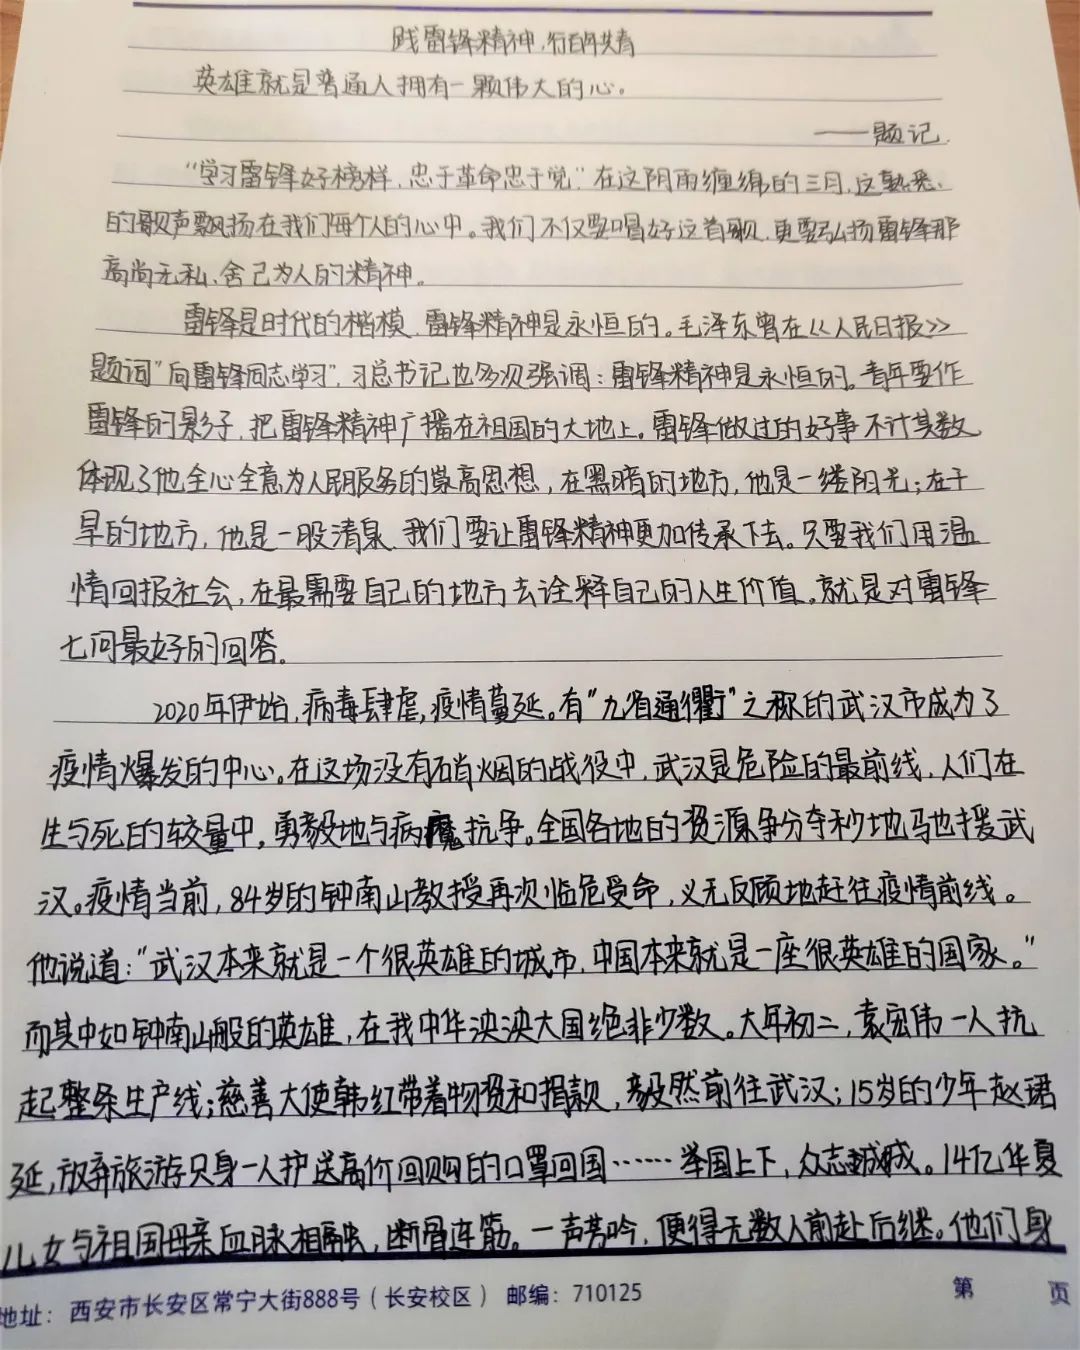 践雷锋精神，行百年共育
英雄就是普通人拥有一颗伟大的心。
——题记
“学习雷锋好榜样，忠于革命忠于党”在这阴雨缠绵的三月，这熟悉
的歌声飘扬在我们每个人的心中。我们不仅要唱好这首歌，更要弘扬雷锋那
高尚无私、舍己为人的精神。
雷锋是时代的楷模，雷锋精神是永恒的。毛泽东曾在《人民日报》
题词“向雷锋同志学习”，习总书记也多次强调：雷锋精神是永恒的。青年要作
雷锋的影子，把雷锋精神广播在祖国的大地上。雷锋做过的好事不计其数
体现了他全心全意为人民服务的崇高思想，在黑暗的地方，他是一缕阳光；在干
旱的地方，他是一股清泉，我们要让雷锋精神更加传承下去。只要我们用温
情回报社会，在最需要自己的地方去诠释自己的人生价值。就是对雷锋
七问最好的回答。
2020年伊始，病毒肆虐，疫情蔓延。有“九省通衢”之称的武汉市成为了
疫情爆发的中心。在这场没有硝烟的战役中，武汉是危险的最前线，人们在
生与死的较量中，勇毅地与病魔抗争。全国各地的资源争分夺秒地驰援武
汉。疫情当前，84岁的钟南山教授再次临危受命，义无反顾地赶往疫情前线。
他说道：“武汉本来就是一个很英雄的城市，中国本来就是一座很英雄的国家。”
而其中如钟南山般的英雄，在我中华泱泱大国绝非少数。大年初二，袁宏伟一人抗
起整条生产线；慈善大使韩红带着物资和捐款，毅然前往武汉；15岁的少年赵珺
延，放弃旅游只身一人护送高价回购的口罩回国……举国上下，众志成城。14亿华夏
儿女与祖国母亲血脉相融，断骨连筋。一声苦吟，便得无数人前赴后继。他们身
地址：西安市长安区常宁大街888号（长安校区） 邮编：710125 第 页